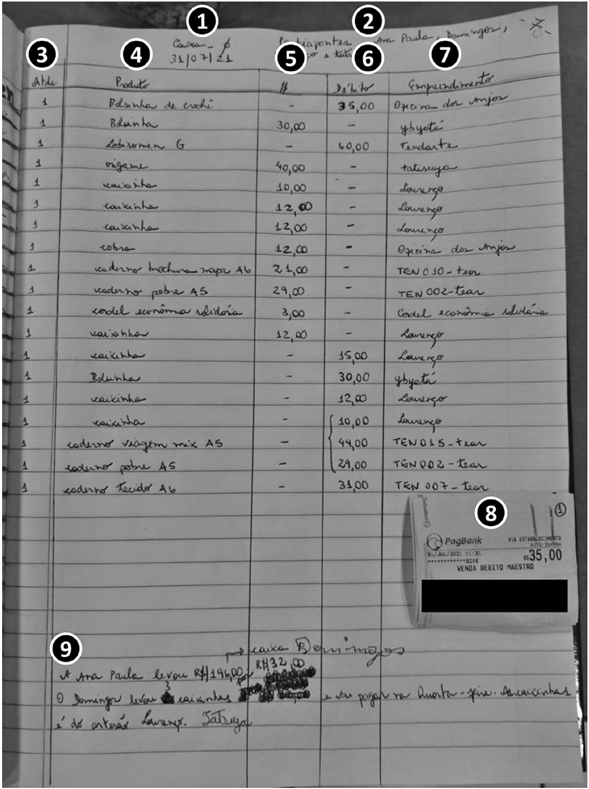 1 2
Caixa - ∅ Participantes: Ana Paula, Domingos,
31/07/21
3 4 5 6 7
Qtde Produto $ Débito Empreendimento
1 Bolsinha de crochê - 35,00 Oficina dos Anjos
1 Bolsinha 30,00 - ybyatã
1 Lobisomem G - 60,00 Tendarte
1 origame 40,00 - tatsuya
1 caixinha 10,00 - Lourenço
1 caixinha 12,00 - Lourenço
1 caixinha 12,00 - Lourenço
1 cobra 12,00 - Oficina dos Anjos
1 caderno brochura mapa A6 21,00 - TEN 010 - tear
1 caderno pobre A5 29,00 - TEN 002 - tear
1 cordel econômia solidária 3,00 - Cordel econômia solidária
1 caixinha 12,00 - Lourenço
1 caixinha - 15,00 Lourenço
1 Bolsinha - 30,00 ybyatã
1 caixinha - 12,00 Lourenço
1 caixinha - 10,00 Lourenço
1 caderno viagem mix A5 - 44,00 TEN 015 - tear
1 caderno pobre A5 - 29,00 TEN 002 - tear
1 caderno tecido A6 - 31,00 TEN 007 - tear
8
1
PagBank VIA ESTABELECIMENTO
31/JUL/2021 11:31
R$35,00
VENDA DEBITO MAESTRO
9
→ caixa Domingos
A Ana Paula levou R$ 196,00 R$ 32,00
O Domingos levou 3 caixinhas e irá pagar na Quarta-feira. As caixinhas
é do artesão Lourenço. Tatsuya